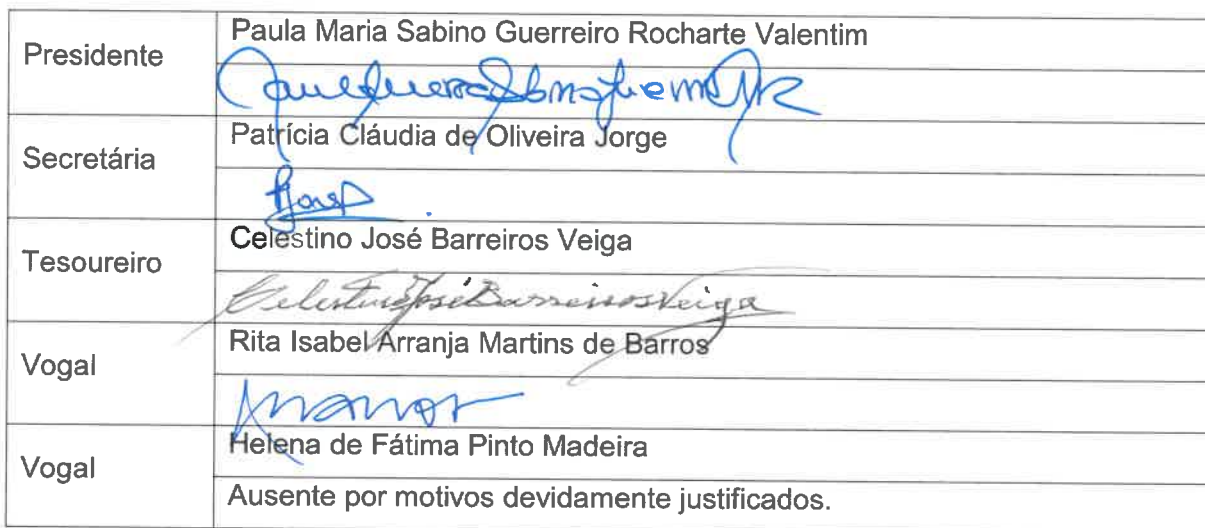 Presidente
Paula Maria Sabino Guerreiro Rocharte Valentim
Secretária
Patrícia Cláudia de Oliveira Jorge
Tesoureiro
Celestino José Barreiros Veiga
Celestino José Barreiros Veiga
Vogal
Rita Isabel Arranja Martins de Barros
Vogal
Helena de Fátima Pinto Madeira
Ausente por motivos devidamente justificados.